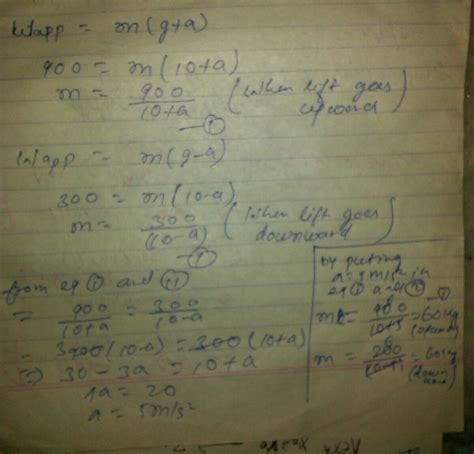 Wapp = m(g+a)
900 = m(10+a)
m = 900/10+a (When lift goes upward)
—①
Wapp = m(g-a)
300 = m(10-a)
m = 300/(10-a) (When lift goes downward)
from eq ① and ⑪
= 900/10+a = 300/10-a
= 900(10-a) = 300(10+a)
⇒ 30 - 3a = 10+a
4a = 20
a = 5m/s²
by putting
a=5m/s² in
eq ① and ②
m = 900/10+5 = 60kg (upward)
m = 300/(10-5) = 60kg (down ward)